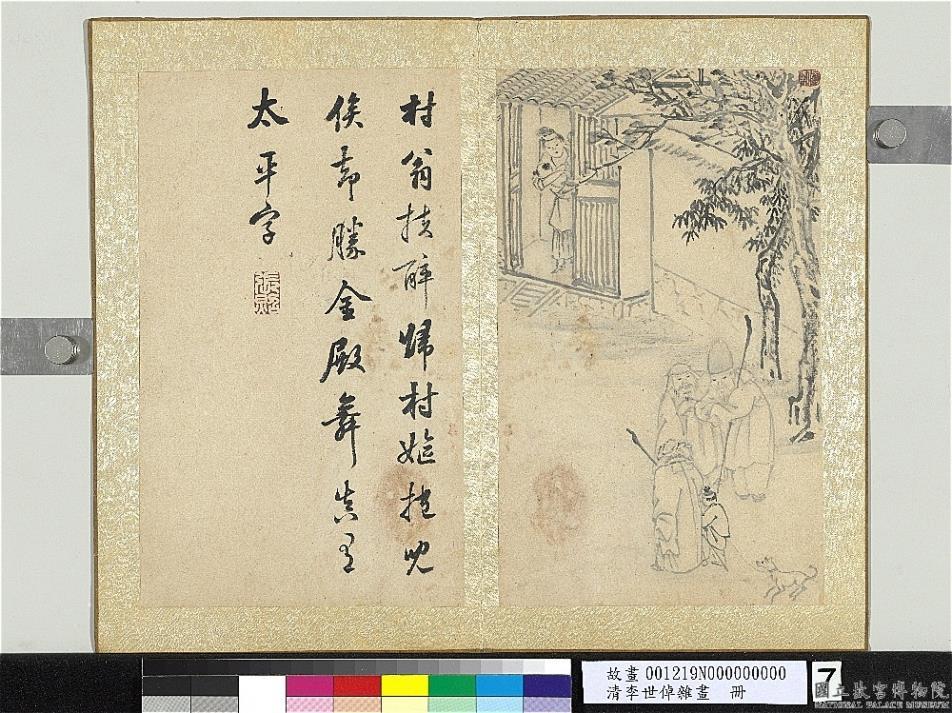 村翁扶醉歸村嫗抱兒
俟却勝金殿舞真有
太平字
故畫001219N000000000
清李世倬雜畫　冊
7
國立故宮博物院
NATIONAL PALACE MUSEUM